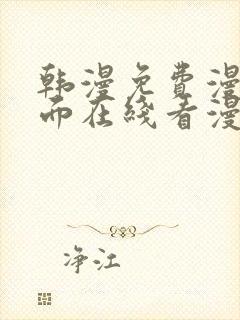 韩漫免费漫
而在线看漫
净江